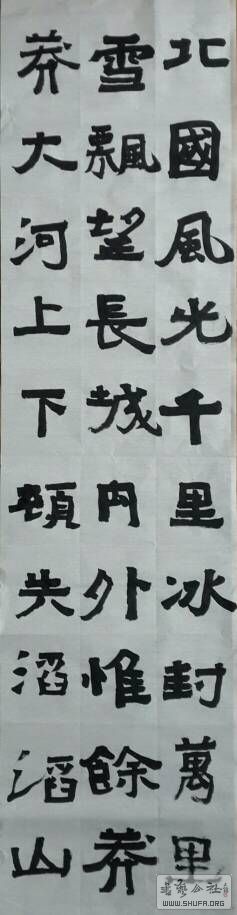 北國風光千里冰封萬里
雪飄望長城内外惟餘莽
莽大河上下頓失滔滔山
書藝公社
WWW.SHUFA.ORG